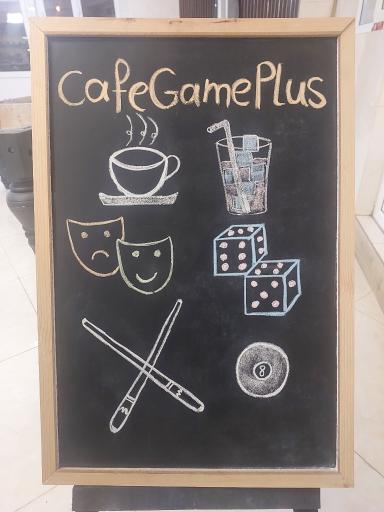 CafeGamePlus
8